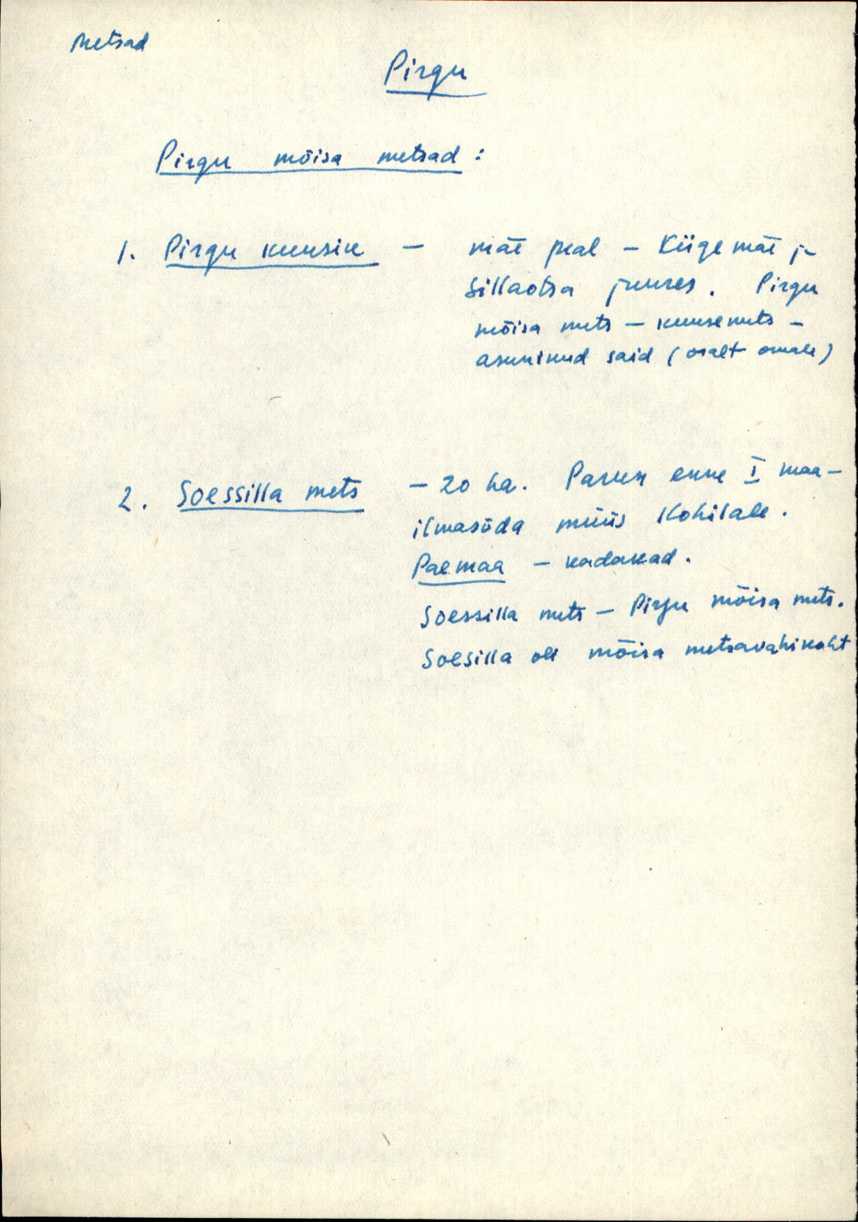 Metsad
Pirgu
Pirgu mõisa metsad :
1. Pirgu kuusik – mäe peal – Kiigemäe j-
Sillaotsa juures. Pirgu
mõisa mets – kuusemets –
asunikud said (osalt omale)
2. Soessilla mets – 20 ha. Parun enne I maa-
ilmasõda müüs Kohilale.
Paemaa – kadakad.
Soessilla mets – Pirgu mõisa mets.
Soesilla oli mõisa metsavahikoht